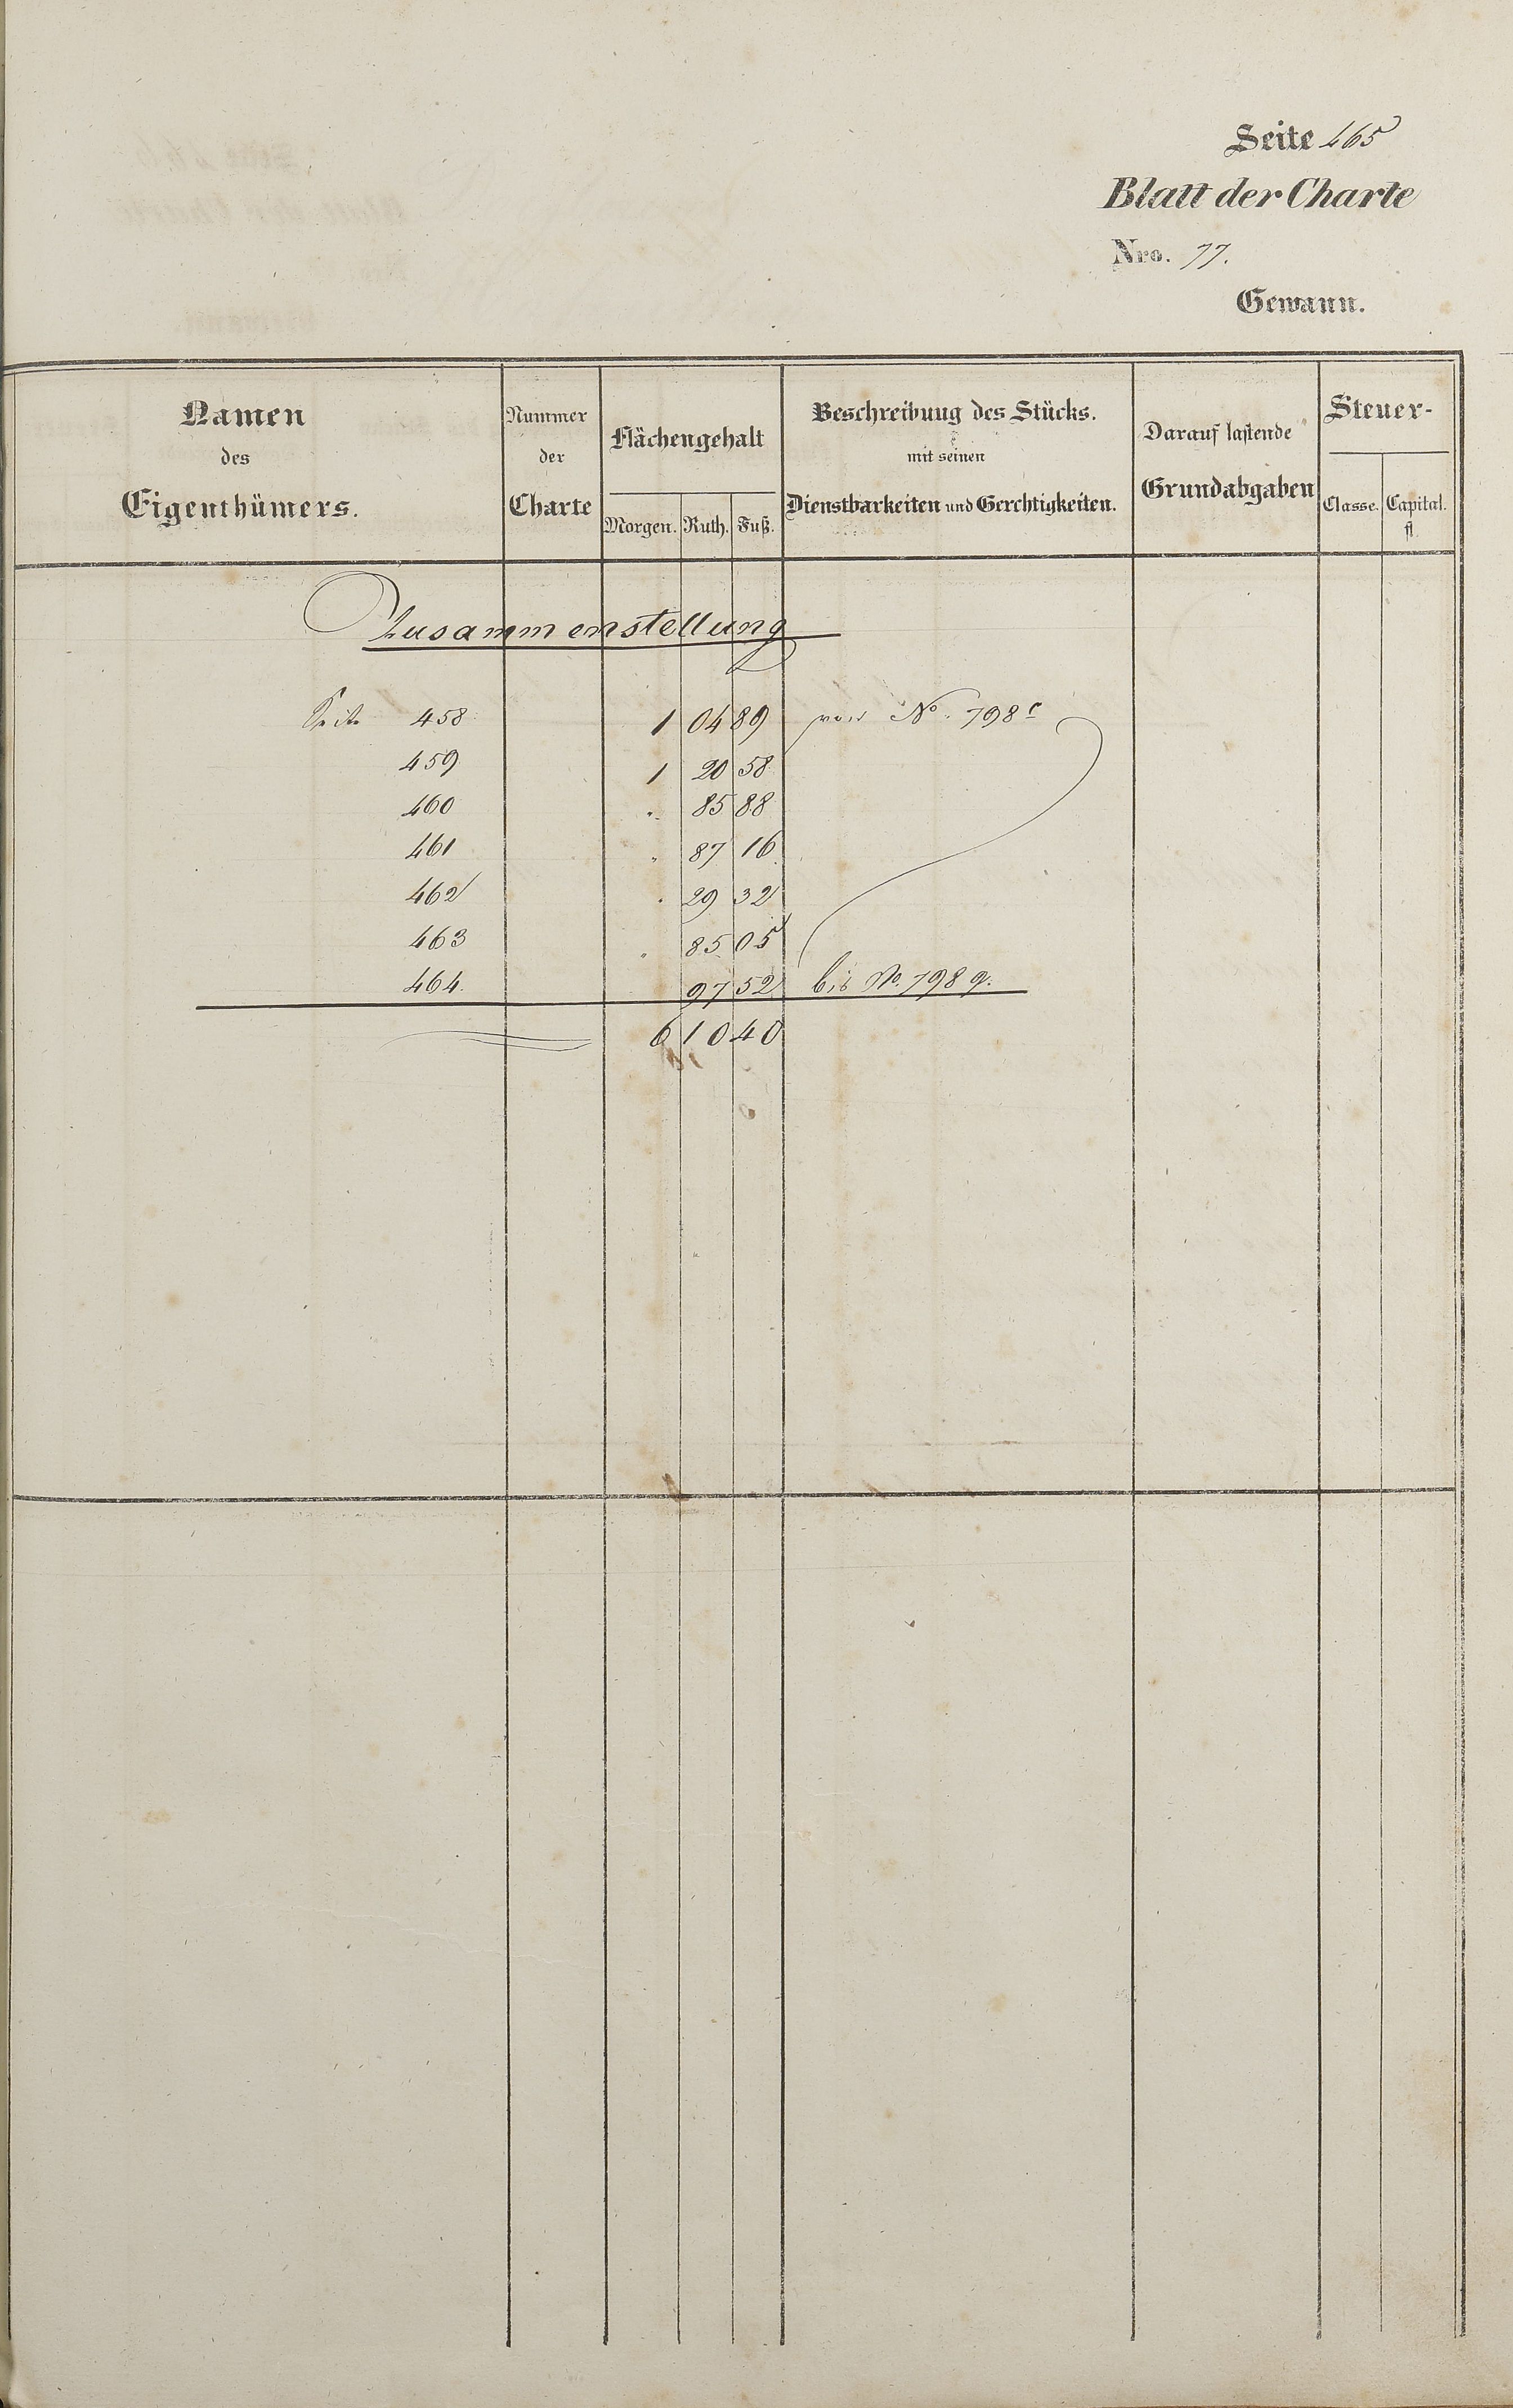 Seite 465
Blatt der Charte
Nro. 77.
Gewann.
Namen
des
Eigenthümers.
Nummer
der
Charte
Flächengehalt
Morgen. Ruth. Fuß.
Beschreibung des Stücks.
mit seinen
Dienstbarkeiten und Gerechtigkeiten.
Darauf lastende
Grundabgaben
Steuer-
Classe. Capital.
fl.
Zusammenstellung
Seite 458 1 04 89 von No. 798 c
459 1 20 58
460 " 85 88
461 " 87 16
462 " 29 32
463 " 85 05
464. 97 52 bis No. 798 q.
6 10 40